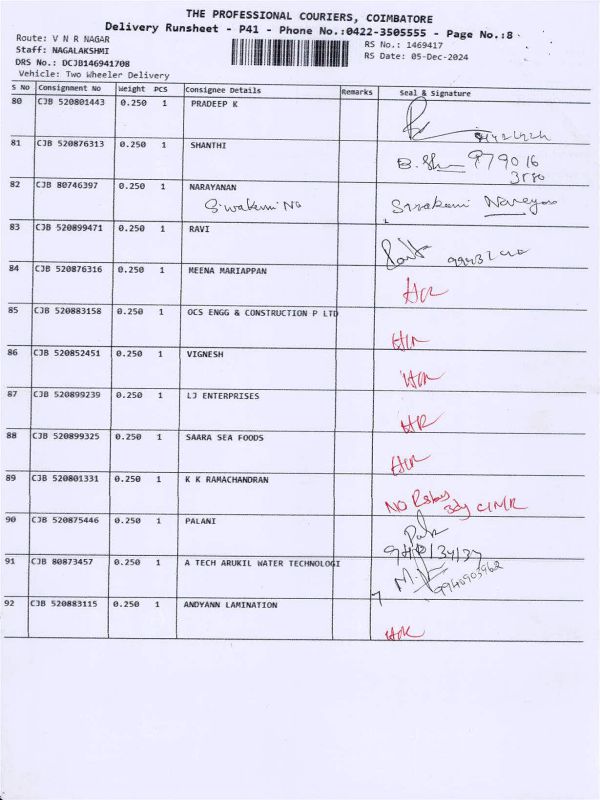 THE PROFESSIONAL COURIERS, COIMBATORE
Delivery Runsheet - P41 - Phone No.:0422-3505555 - Page No.:8
Route: V N R NAGAR
RS No.: 1469417
Staff: NAGALAKSHMI
RS Date: 05-Dec-2024
DRS No.: DCJB146941708
Vehicle: Two Wheeler Delivery
S No Consignment No Weight PCS Consignee Details Remarks Seal & Signature
80 CJB 520801443 0.250 1 PRADEEP K
81 CJB 520876313 0.250 1 SHANTHI
B. Sh 979016
3580
82 CJB 80746397 0.250 1 NARAYANAN
Sivakami Na
Sivakami Narayan
83 CJB 520899471 0.250 1 RAVI
84 CJB 520876316 0.250 1 MEENA MARIAPPAN
85 CJB 520883158 0.250 1 OCS ENGG & CONSTRUCTION P LTD
86 CJB 520852451 0.250 1 VIGNESH
87 CJB 520899239 0.250 1 LJ ENTERPRISES
88 CJB 520899325 0.250 1 SAARA SEA FOODS
89 CJB 520801331 0.250 1 K K RAMACHANDRAN
90 CJB 520875446 0.250 1 PALANI
91 CJB 80873457 0.250 1 A TECH ARUKIL WATER TECHNOLOGI
9940903962
92 CJB 520883115 0.250 1 ANDYANN LAMINATION